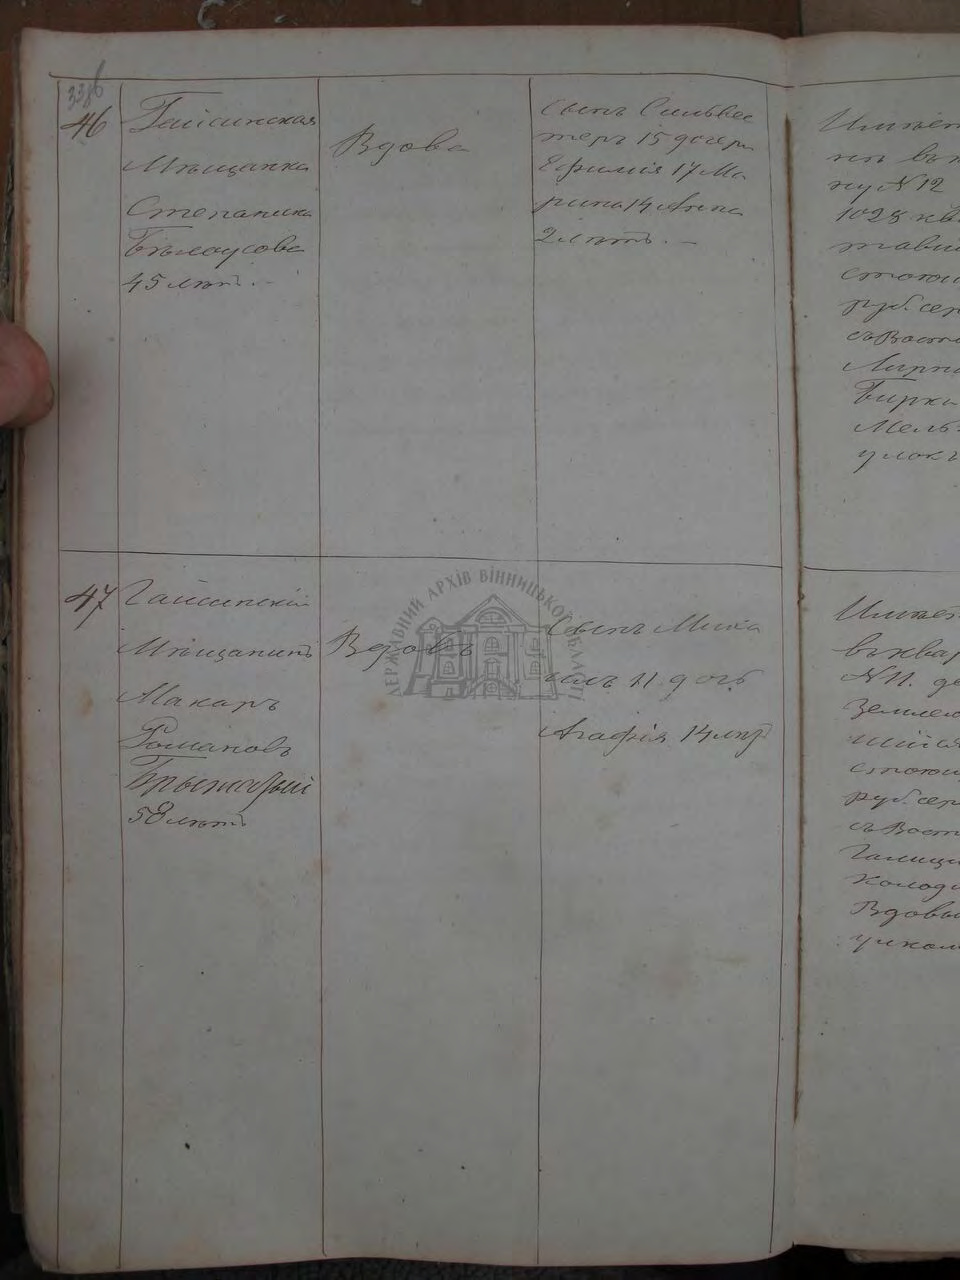 46
Гайсинская
Мѣщанка
Степанида
Бѣлоусова
45 лѣтъ. –
Вдова
Сынъ Сильвес
теръ 15 дочери
Ефимія 17 Ма
рина 14 Анна
2 лѣтъ. –
Имѣет
ну № 12
1028 кв
стоющ
руб. сер
съ Восто
Бирка
Мель
47
Гайсинскій
Мѣщанинъ
Макаръ
Романовъ
58 лѣтъ
Вдовъ
Сынъ Миха
илъ 11. дочь
Агафія 14 лѣтъ
Имѣет
въ квар
№ 11. де
Землею
стоющ
руб. сер
съ Вост
Галиц
Колод
Вдовы
ДЕРЖАВНИЙ АРХІВ ВІННИЦЬКОЇ ОБЛАСТІ